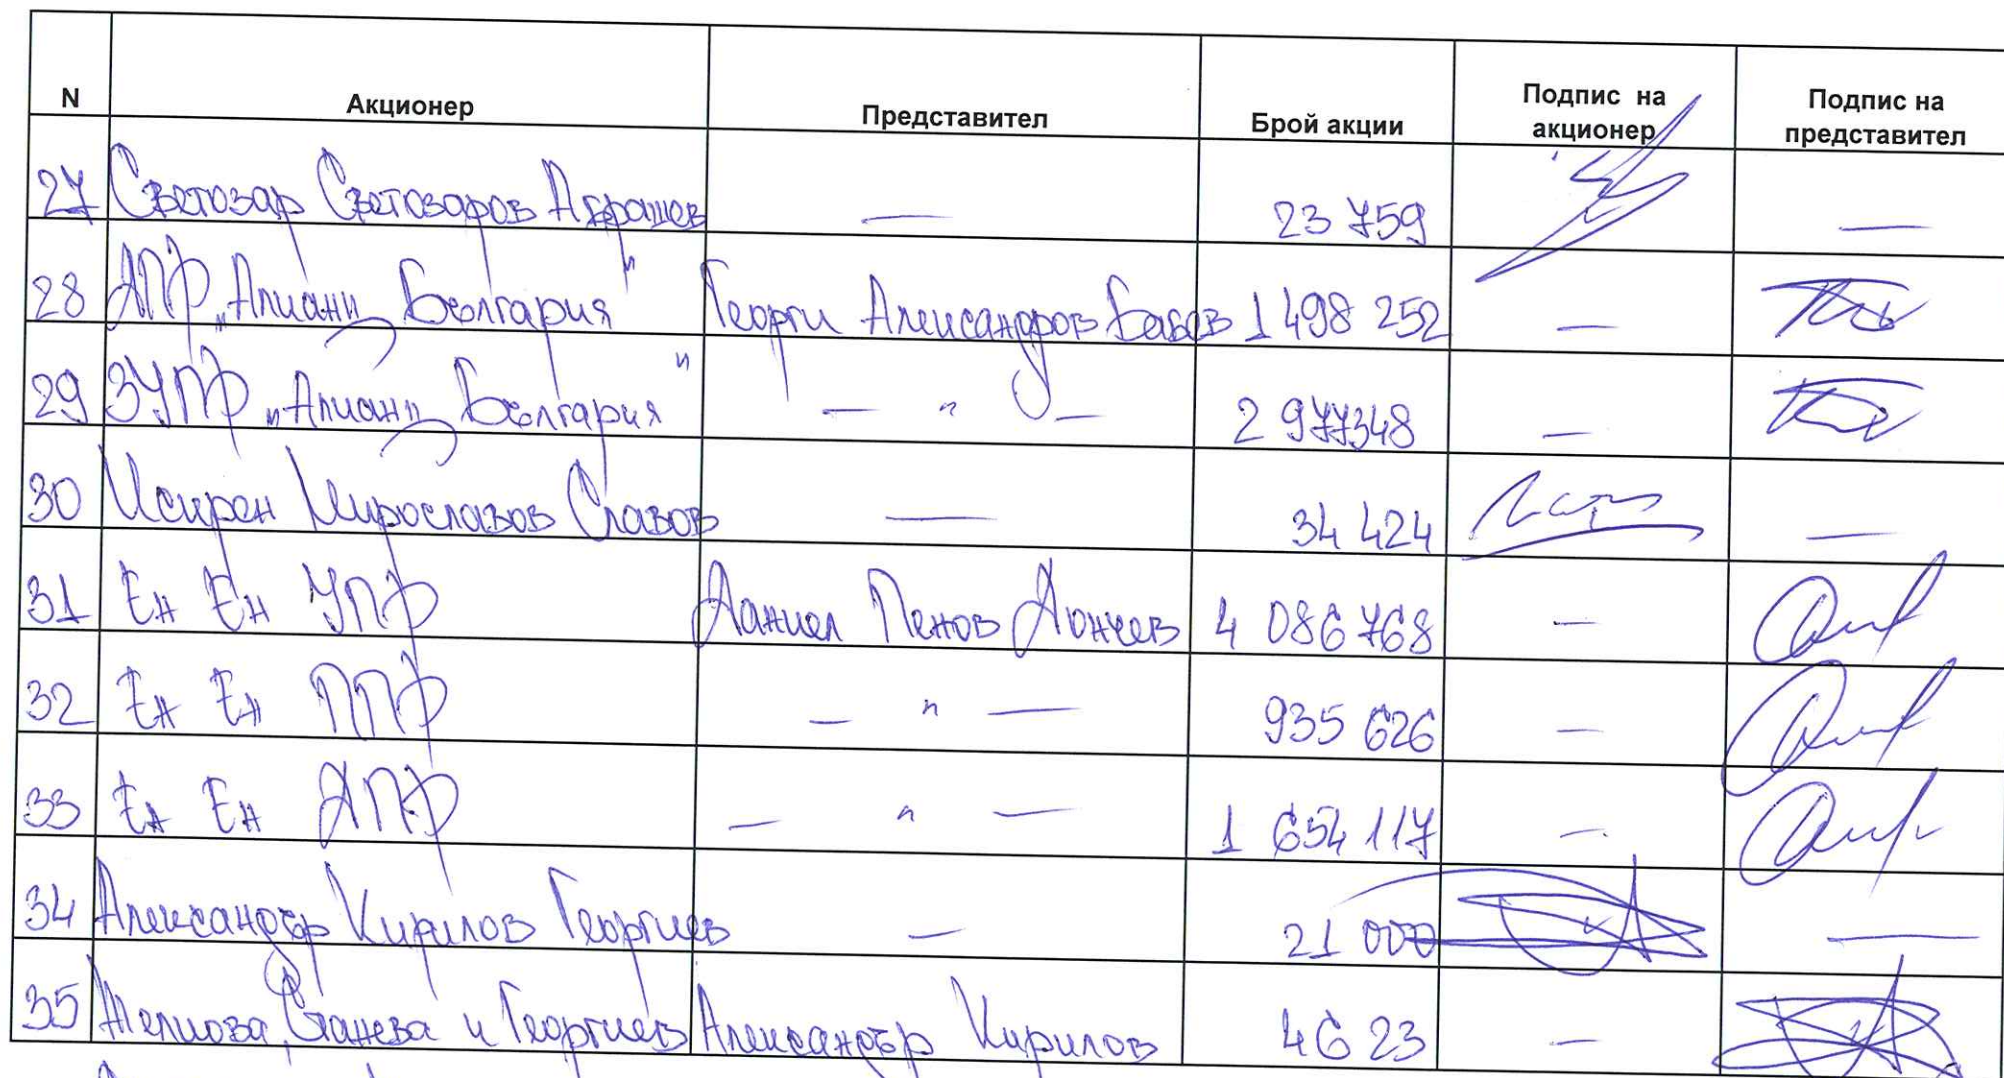 N Акционер Представител Брой акции Подпис на акционер Подпис на представител
27 Светозар Светозаров Абрашев — 23 759 —
28 ДПФ „Алианц България" Георги Александров Бабев 1 498 252 —
29 ЗУПФ „Алианц България" — " — 2 977348 —
30 Искрен Мирославов Славов — 34 424 —
31 Ен Ен УПФ Даниел Пенов Дончев 4 086 768 —
32 Ен Ен ППФ — " — 935 626 —
33 Ен Ен ДПФ — " — 1 654 117 —
34 Александър Кирилов Георгиев — 21 000 —
35 Желиова, Станева и Георгиев Александър Кирилов 46 23 —